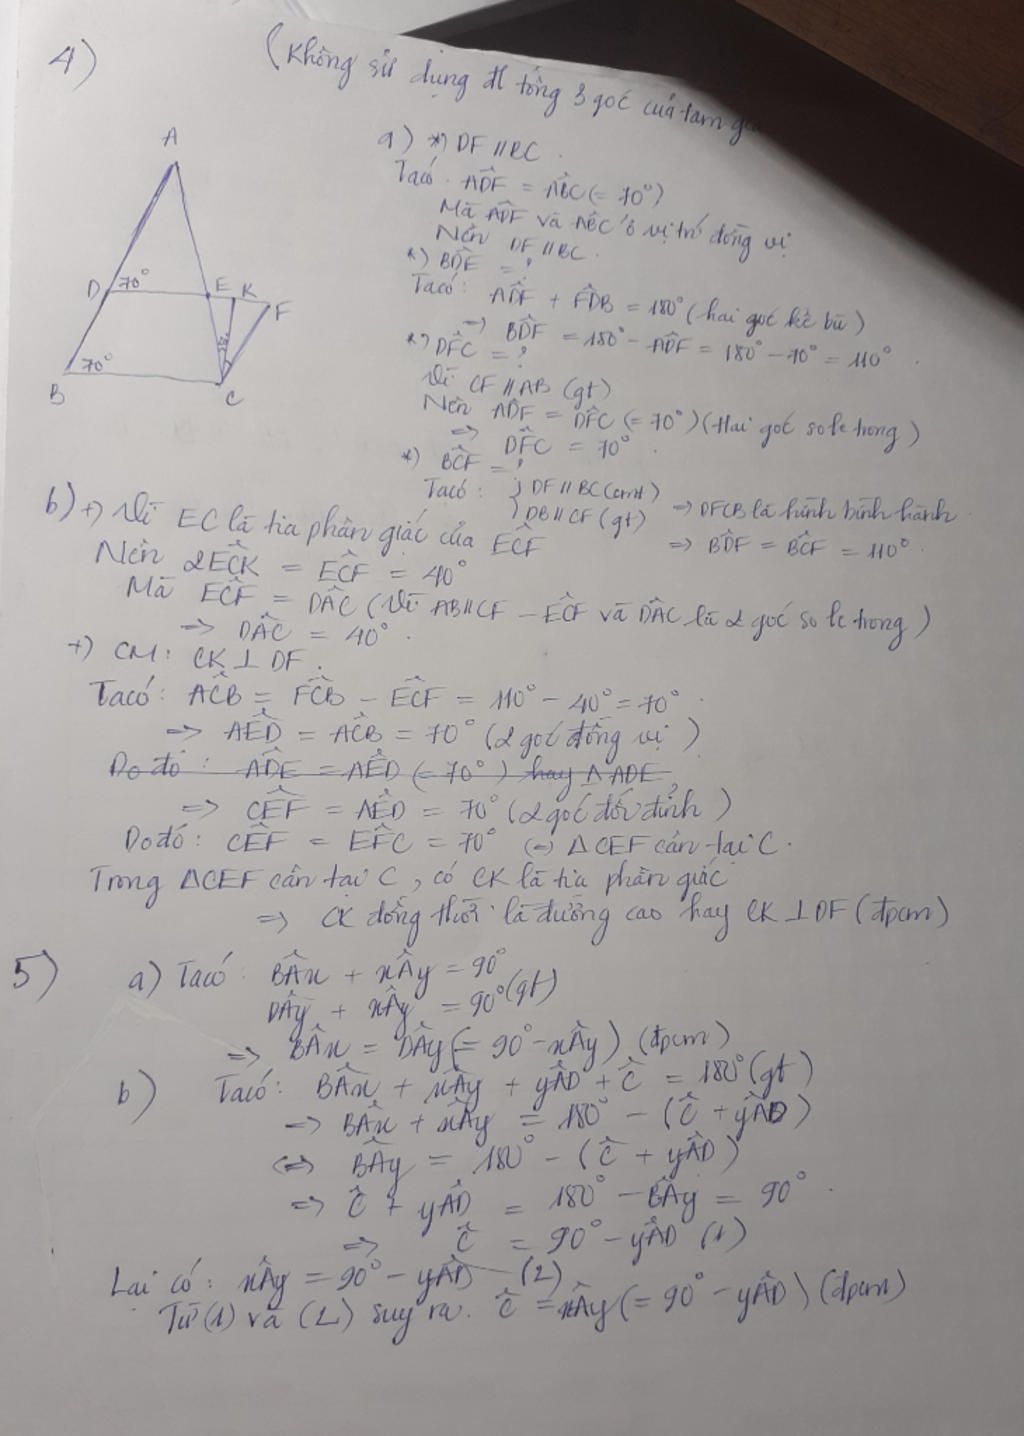 4)
(Không sử dụng đl tổng 3 góc của tam
A
D 70° E K F
B 70° C
a) *) DF // BC.
Ta có: ADF̂ = ABĈ (= 70°)
Mà ADF̂ và ABĈ ở vị trí đồng vị
Nên DF // BC.
*) BDÊ = ?
Ta có: ADF̂ + FDB̂ = 180° (hai góc kề bù)
=> BDF̂ = 180° - ADF̂ = 180° - 70° = 110°.
*) DFĈ = ?
Vì CF // AB (gt)
Nên ADF̂ = DFĈ (= 70°) (Hai góc so le trong)
=> DFĈ = 70°.
*) BCF̂ = ?
Ta có: { DF // BC (cmt)
DB // CF (gt) => DFCB là hình bình hành
=> BDF̂ = BCF̂ = 110°.
b) +) Vì EC là tia phân giác của ECF̂
Nên 2ECK̂ = ECF̂ = 40°
Mà ECF̂ = DAĈ (Vì AB // CF - ECF̂ và DAĈ là 2 góc so le trong)
=> DAĈ = 40°.
+) CM: CK ⊥ DF.
Ta có: ACB̂ = FCB̂ - ECF̂ = 110° - 40° = 70°.
=> AED̂ = ACB̂ = 70° (2 góc đồng vị)
Do đó: ADÊ = AED̂ (= 70°) hay △ADE
=> CEF̂ = AED̂ = 70° (2 góc đối đỉnh)
Do đó: CEF̂ = EFĈ = 70° (=> △CEF cân tại C.
Trong △CEF cân tại C, có CK là tia phân giác
=> CK đồng thời là đường cao hay CK ⊥ DF (đpcm)
5) a) Ta có: BAx̂ + xAŷ = 90°
DAŷ + xAŷ = 90° (gt)
=> BAx̂ = DAŷ (= 90° - xAŷ) (đpcm)
b) Ta có: BAx̂ + xAŷ + yAD̂ + Ĉ = 180° (gt)
=> BAx̂ + xAŷ = 180° - (Ĉ + yAD̂)
<=> BAŷ = 180° - (Ĉ + yAD̂)
=> Ĉ + yAD̂ = 180° - BAŷ = 90°.
=> Ĉ = 90° - yAD̂ (1)
Lại có: xAŷ = 90° - yAD̂ (2)
Từ (1) và (2) suy ra. Ĉ = xAŷ (= 90° - yAD̂) (đpcm)